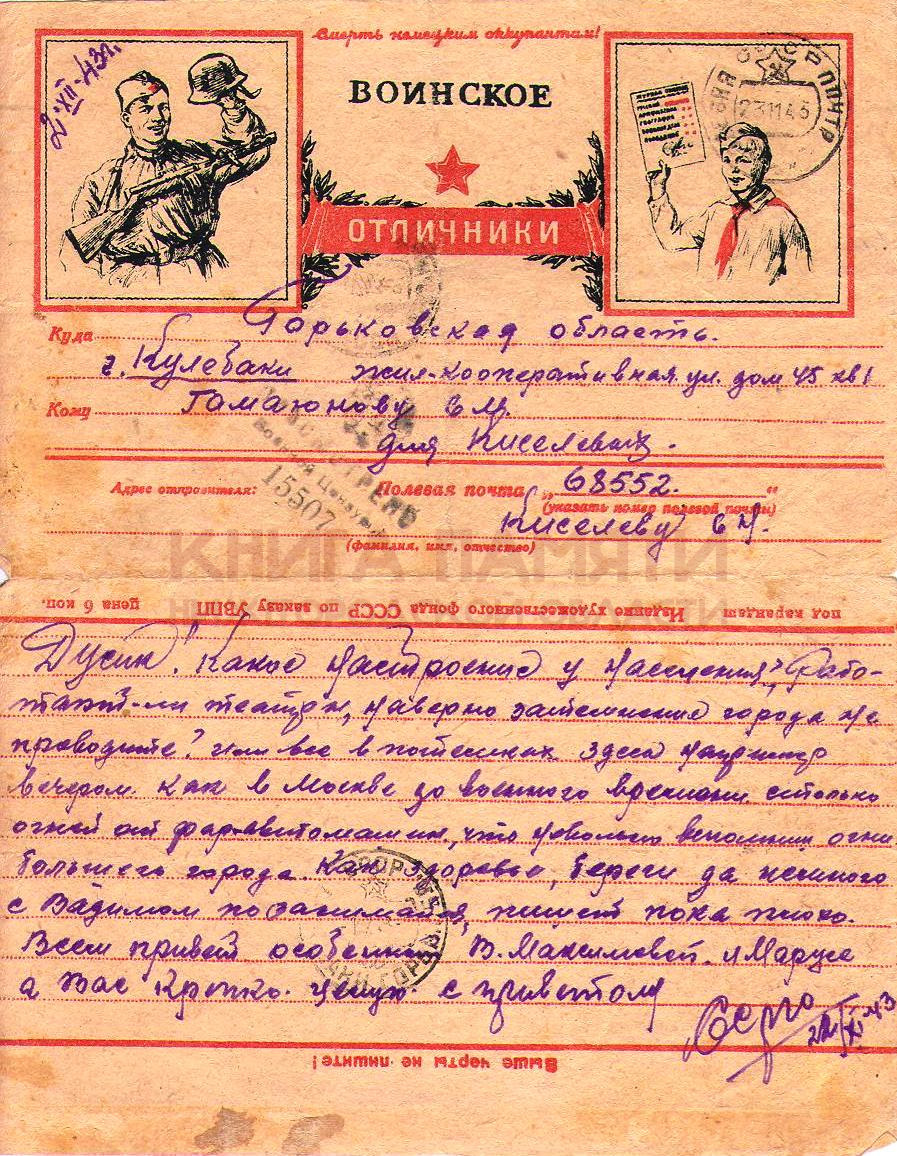 Смерть немецким оккупантам!
2 XII-43г.
ВОИНСКОЕ
ОТЛИЧНИКИ
Куда Горьковская область.
г. Кулебаки жил-кооперативная ул. дом 45 кв 1
Кому Гамаюнову
для Киселевых.
ПРОСМОТРЕНО
Военной Цензурой
15507
Адрес отправителя: Полевая почта „68552.“
(указать номер полевой почты)
Киселеву
(фамилия, имя, отчество)
КНИГА ПАМЯТИ
НИЖЕГОРОДСКОЙ ОБЛАСТИ
Издание художественного фонда СССР по заказу УВПП цена 6 коп.
Дусик! Какое настроение у населения, Рабо-
тают-ли театры, наверно затемнение города не
проводите? или все в потемках здесь например
вечером как в Москве до военного времени столько
огней от фар-автомашин, что невольно вспомнишь огни
большего города. Как здоровье, береги да немного
с Вадимом позанимайся, пишет пока плохо.
Всем привет особенно В. Максимовой и Марусе
а Вас Крепко целую с приветом
Выше черты не пишите!